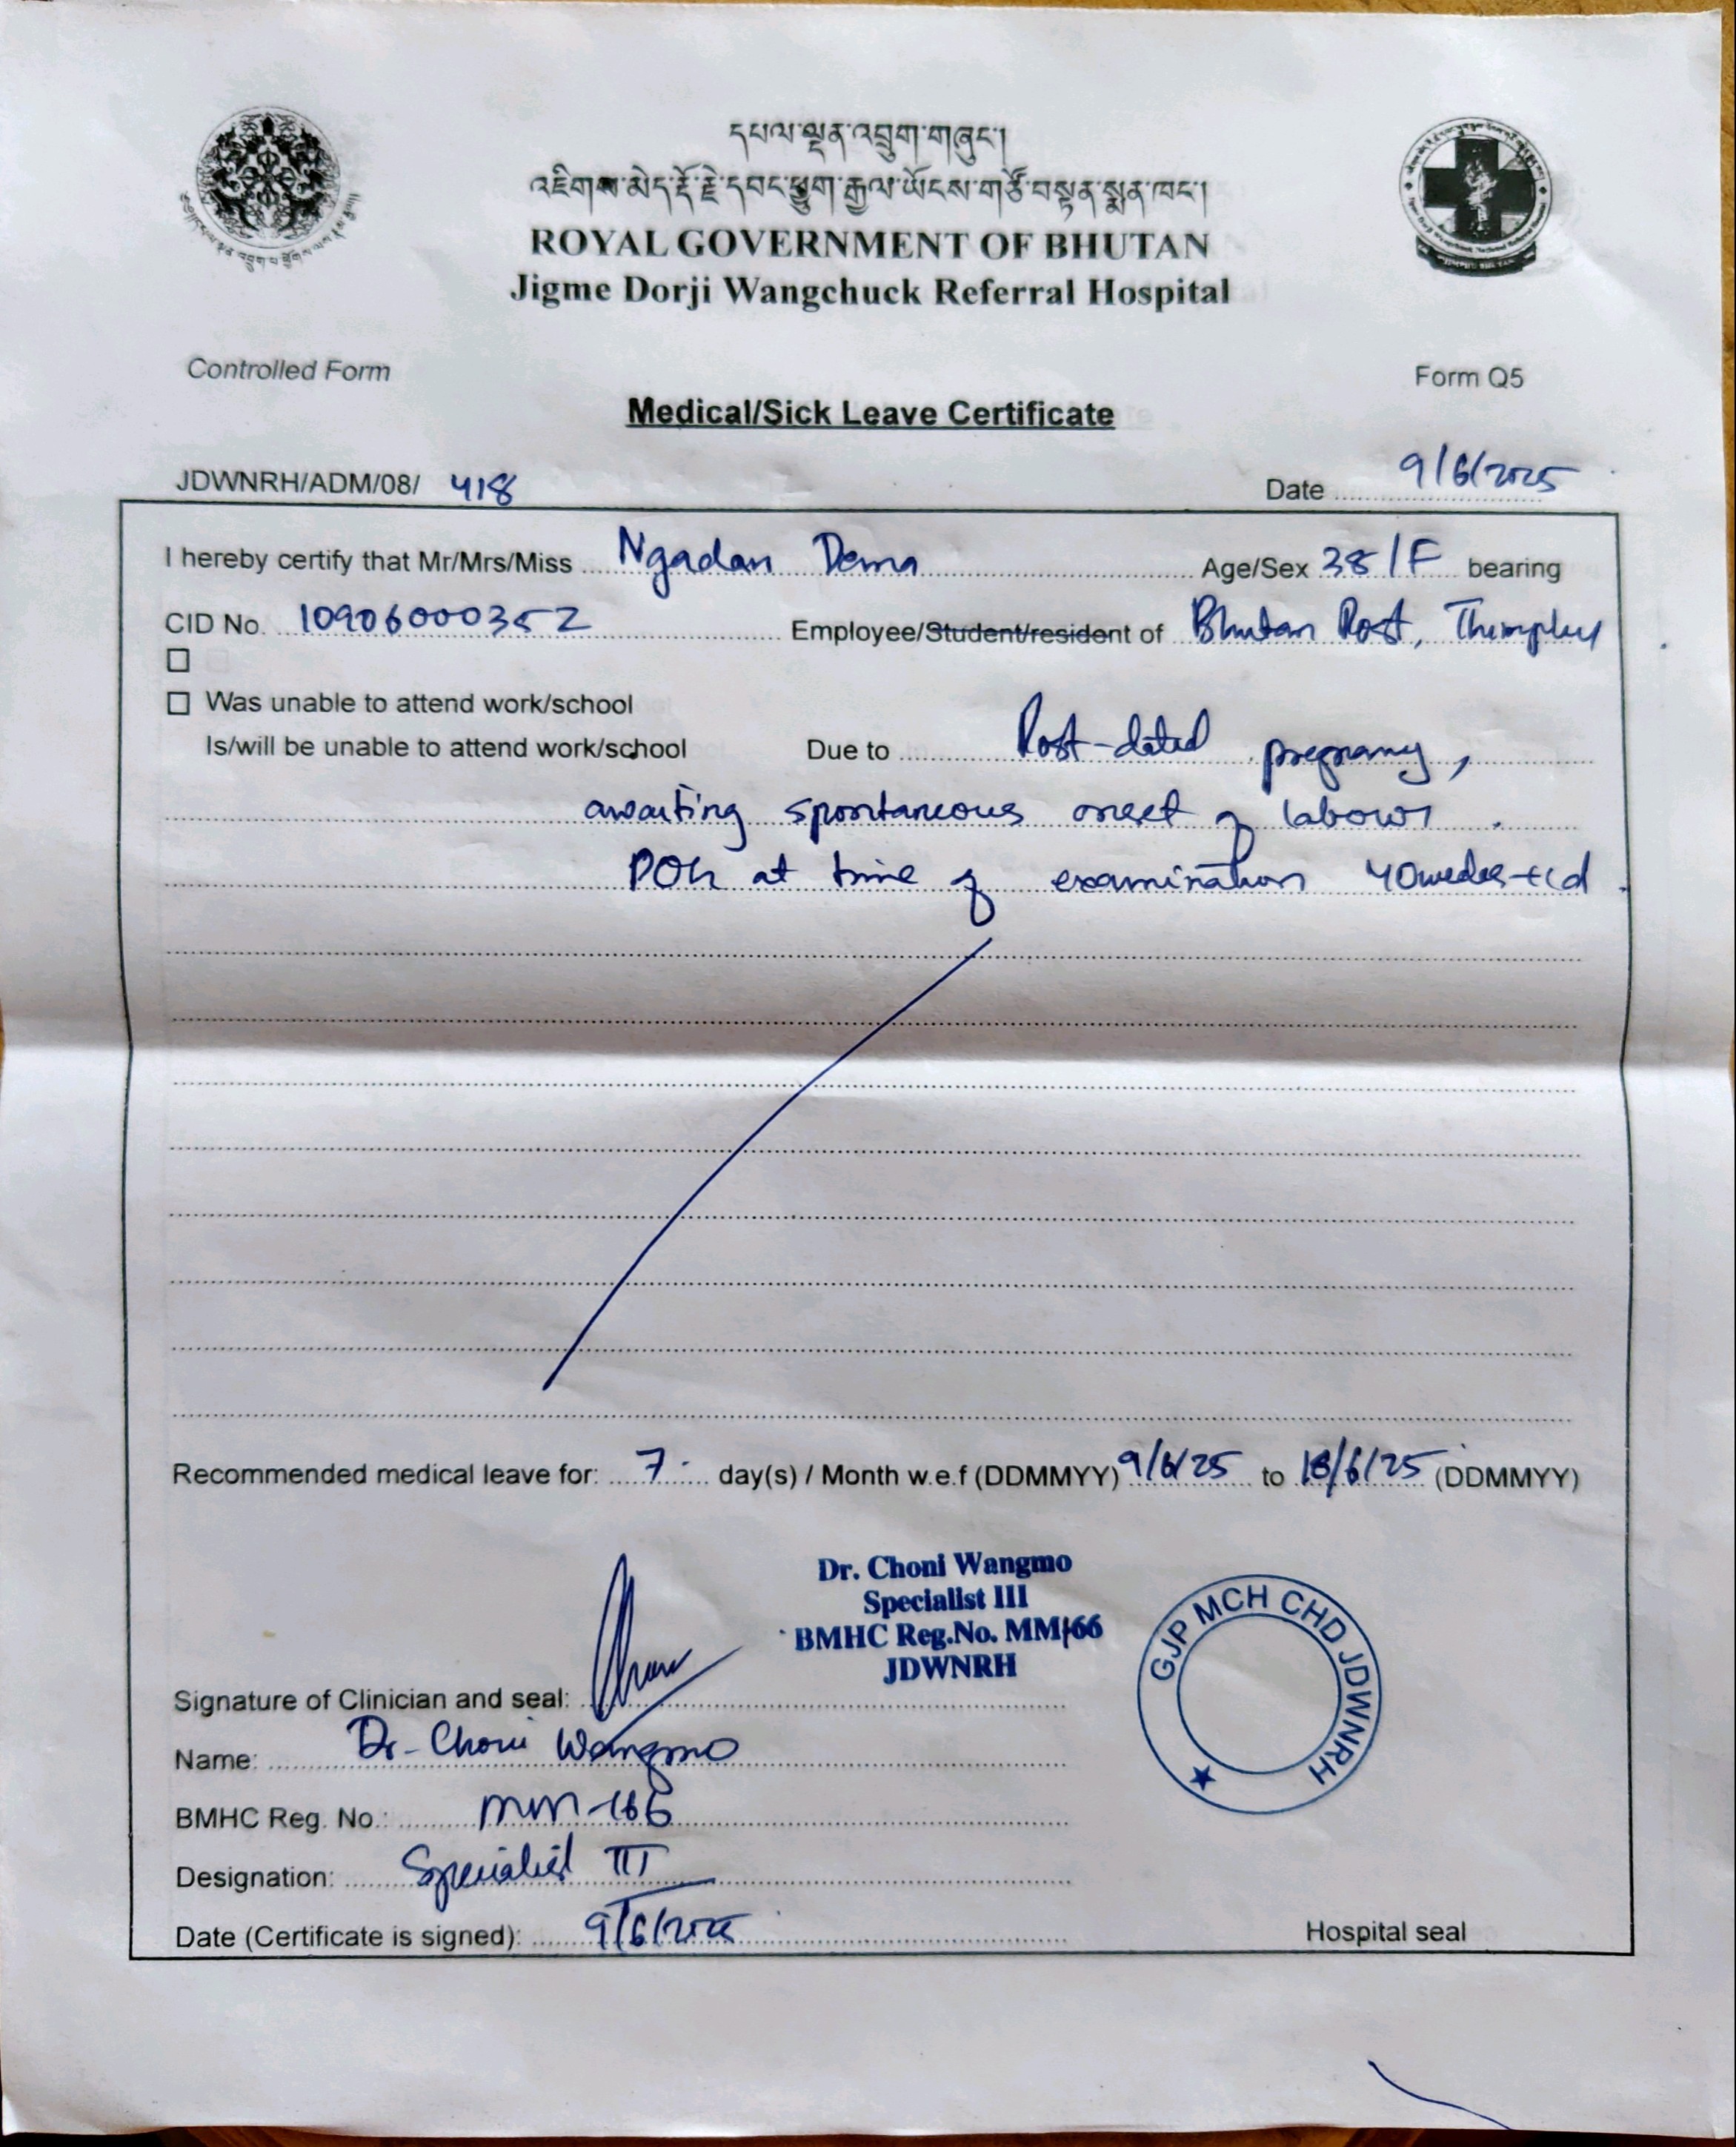 དཔལ་ལྡན་འབྲུག་གཞུང་།
འཇིགས་མེད་རྡོ་རྗེ་དབང་ཕྱུག་རྒྱལ་ཡོངས་གཙོ་བསྟེན་སྨན་ཁང་།
ROYAL GOVERNMENT OF BHUTAN
Jigme Dorji Wangchuck Referral Hospital
Controlled Form Form Q5
Medical/Sick Leave Certificate
JDWNRH/ADM/08/ 418 Date 9/6/2025
I hereby certify that Mr/Mrs/Miss Ngadan Dema Age/Sex 38/F bearing
CID No. 10906000352 Employee/Student/resident of Bhutan Post, Thimphu
Was unable to attend work/school
Is/will be unable to attend work/school Due to Post-dated pregnany,
awaiting spontaneous onset of labour.
POG at time of examination 40weeks+1d.
Recommended medical leave for: 7 day(s) / Month w.e.f (DDMMYY) 9/6/25 to /6/25 (DDMMYY)
Dr. Choni Wangmo
Specialist III
BMHC Reg.No. MM-166
JDWNRH
GJP MCH CHD JDWNRH
Signature of Clinician and seal:
Name: Dr. Choni Wangmo
BMHC Reg. No.: MM-166
Designation: Specialist III
Date (Certificate is signed): 9/6/2025
Hospital seal